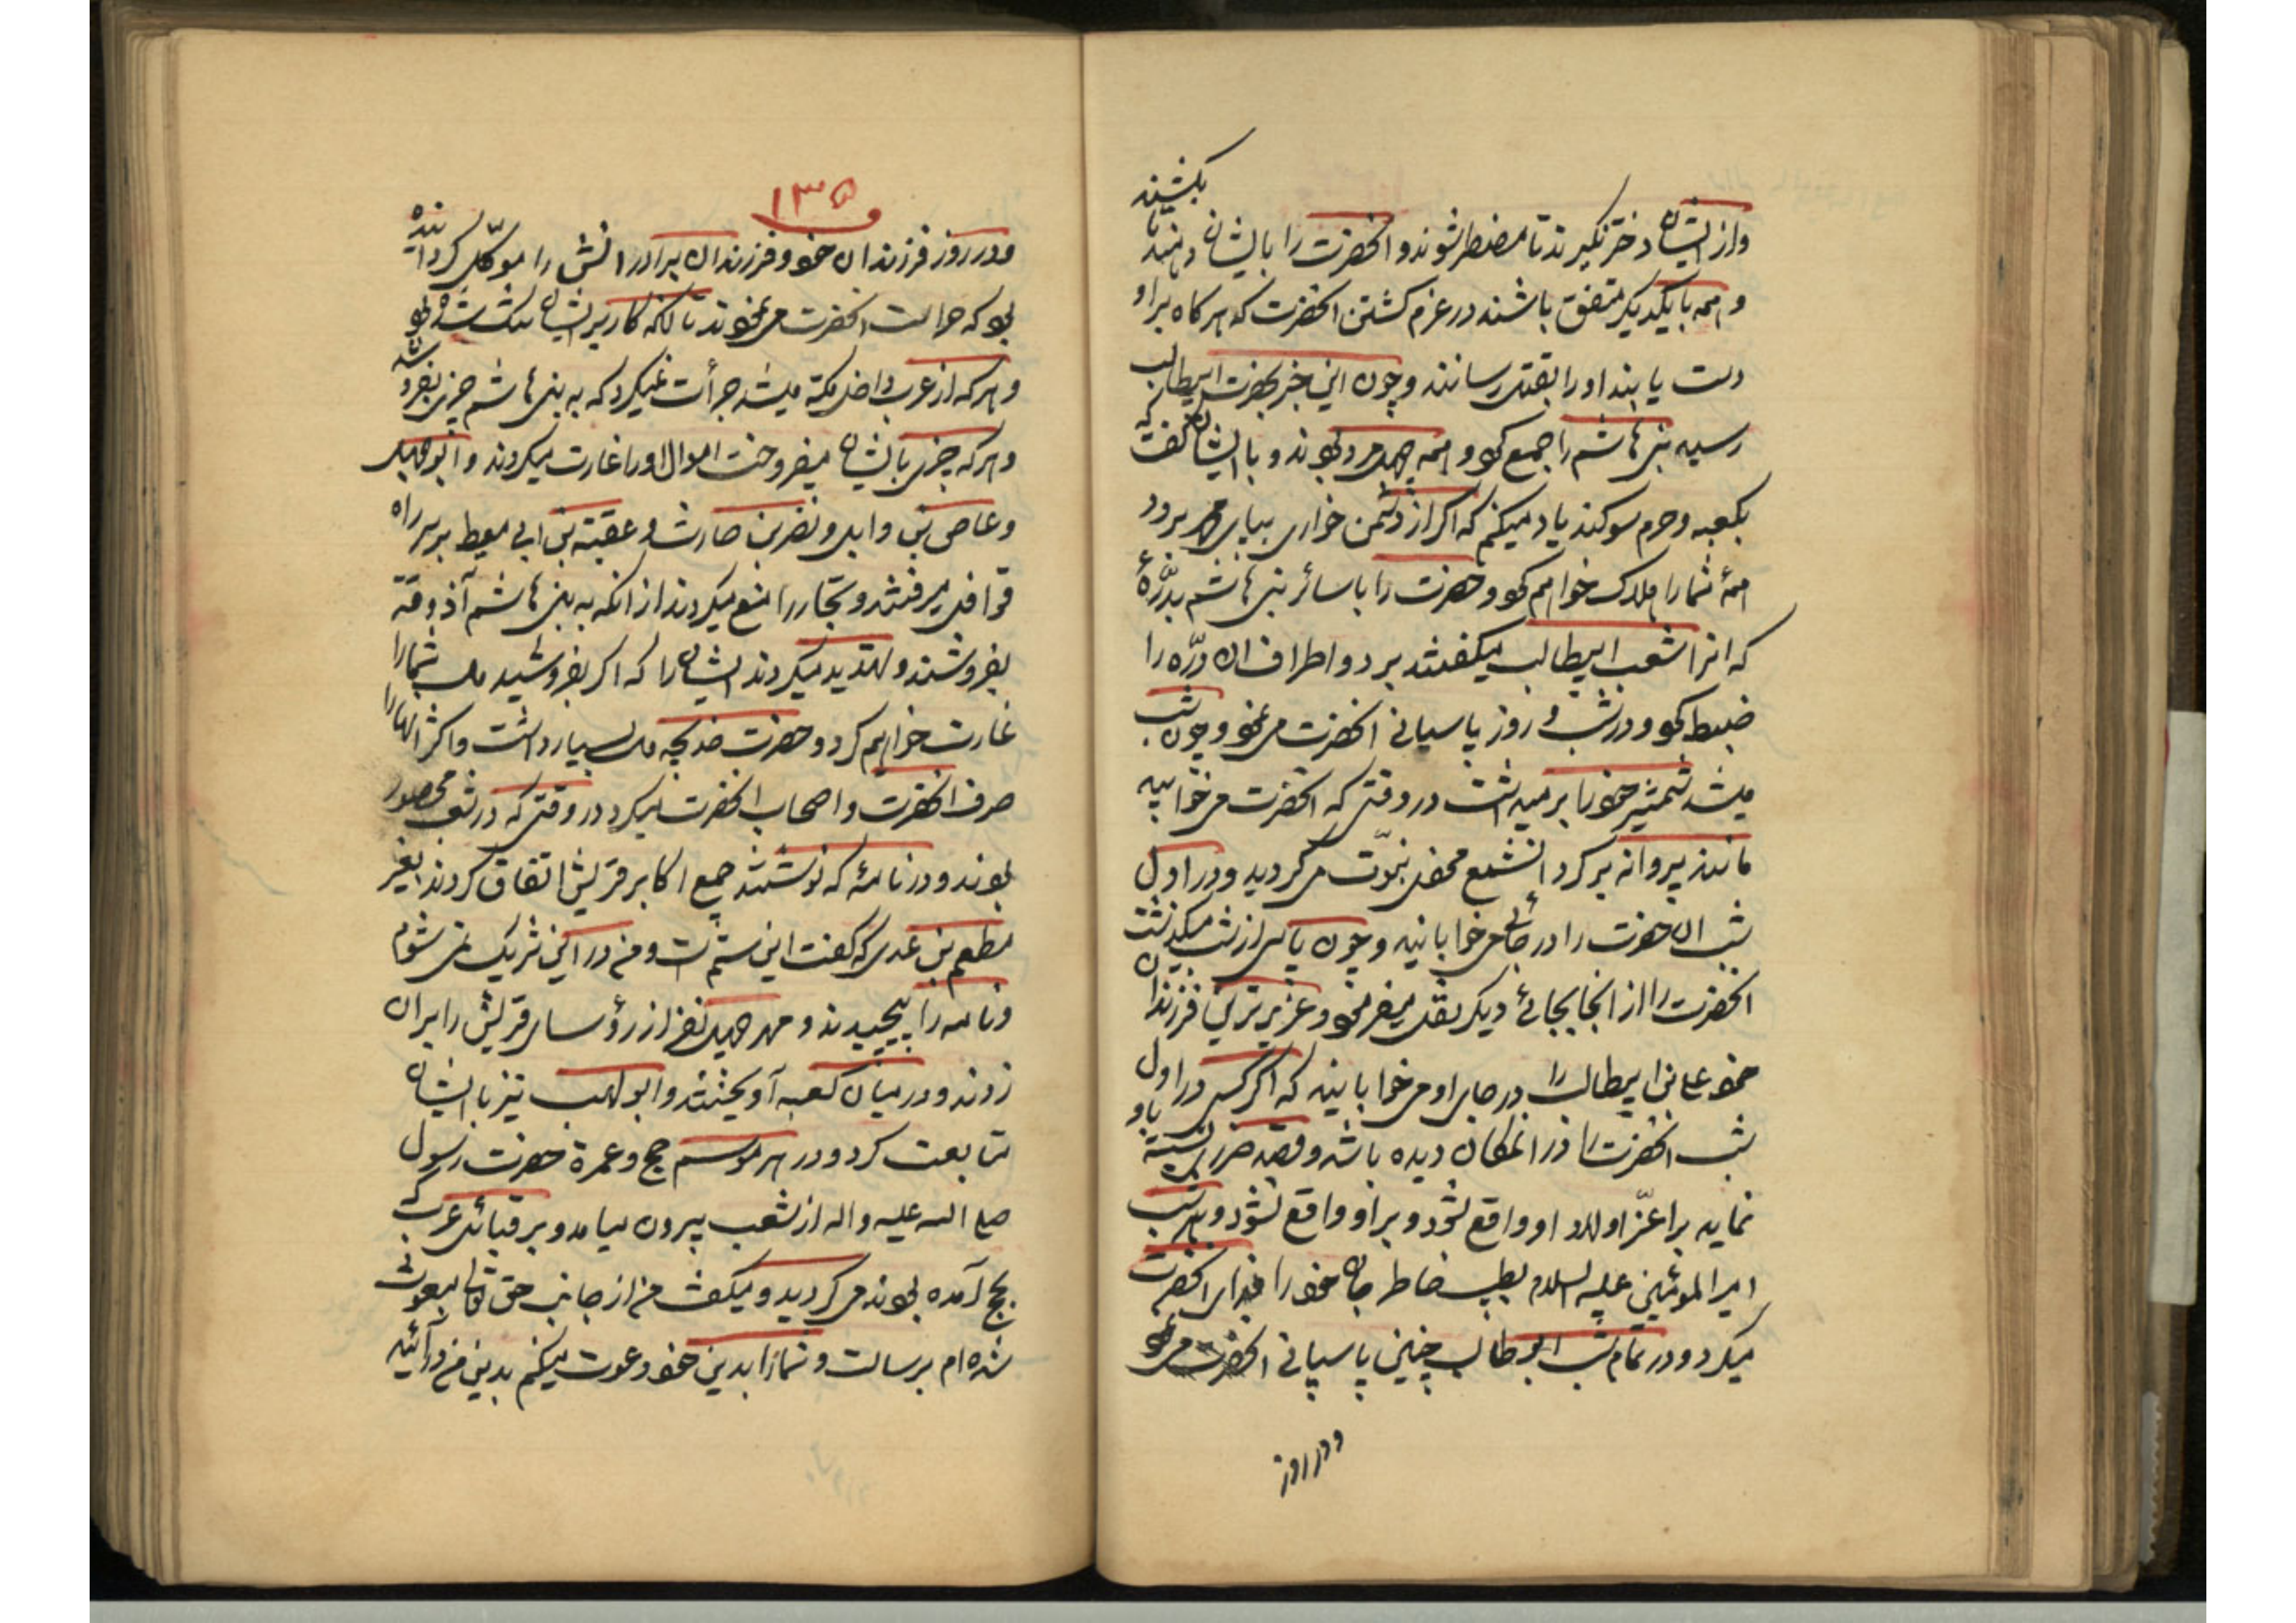 و از ایشان دختر نگیرند تا مضطر شوند و انحضرت را بایشان دهند تا بکشند
و همه با یکدیگر متفق باشند در عزم کشتن انحضرت که هر کاه بر او
دست یابند او را بقتل رسانند و چون این خبر بحضرت ابیطالب
رسید بنی هاشم را جمع کرد و همه چهل مرد بودند و با ایشان گفت که
بکعبه و حرم سوکند یاد میکنم که اکر از دشمن خواری بپای محمد برود
همهٔ شما را هلاک خواهم کرد و حضرت را با سائر بنی هاشم بدرّهٔ
که انرا شعب ابیطالب میکفتند برد و اطراف ان درّه را
ضبط کرد و در شب و روز پاسبانی انحضرت می نمود و چون شب
میشد شمشیر خود را بر میداشت در وقتی که انحضرت می خوابید
مانند پروانه بر کرد ان شمع محفل نبوّت می کردید و در اول
شب ان حضرت را در جائی می خوابانید و چون پاسی از شب میکذشت
انحضرت را از انجا بجائی دیکر نقل میفرمود و عزیزترین فرزندان
خود علی بن ابیطالب را در جای او می خوابانید که اکر کسی در اول
شب انحضرت را در انمکان دیده باشد و قصد ضرر نسبت باو
نماید بر اعزّ اولاد او واقع شود و بر او واقع نشود و هر شب
امیر المومنین علیه السلام بطیب خاطر جان خود را فدای انحضرت
میکرد و در تمام شب ابو طالب چنین پاسبانی انحضرت می نمود
و در روز
۱۳۵
و در روز فرزندان خود و فرزندان برادرانش را موکّل کردانیده
بود که حراست انحضرت می نمودند تا انکه کار بر ایشان تنک شده بود
و هر که از عرب داخل مکه میشد جرأت نمیکرد که به بنی هاشم چیزی بفروشد
و هر که چیزی بایشان میفروخت اموال او را غارت میکردند و ابوجهل
و عاص بن وایل و نضر بن حارث و عقبة بن ابی معیط بر سر راه
قوافل میرفتند و تجّار را منع میکردند از انکه به بنی هاشم آذوقه
بفروشند و تهدید میکردند ایشان را که اکر بفروشید مال شما را
غارت خواهیم کرد و حضرت خدیجه مال بسیار داشت و اکثر انها را
صرف انحضرت و اصحاب انحضرت میکرد در وقتی که در شعب محصور
بودند و در نامهٔ که نوشتند جمیع اکابر قریش اتفاق کردند بغیر
مطعم بن عدی که گفت این ستم است و من در این شریک نمی شوم
و نامه را پیچیدند و مهر چهل نفر از رؤسای قریش را بر ان
زدند و در میان کعبه آویختند و ابو لهب نیز با ایشان
متابعت کرد و در هر موسم حج و عمرة حضرت رسول
صلی الله علیه و اله از شعب بیرون میامد و بر قبائل عرب که
بحج آمده بودند می کردید و میکفت من از جانب حق تعالی مبعوث
شده ام برسالت و شما را بدین خود دعوت میکنم بدین من درآئید